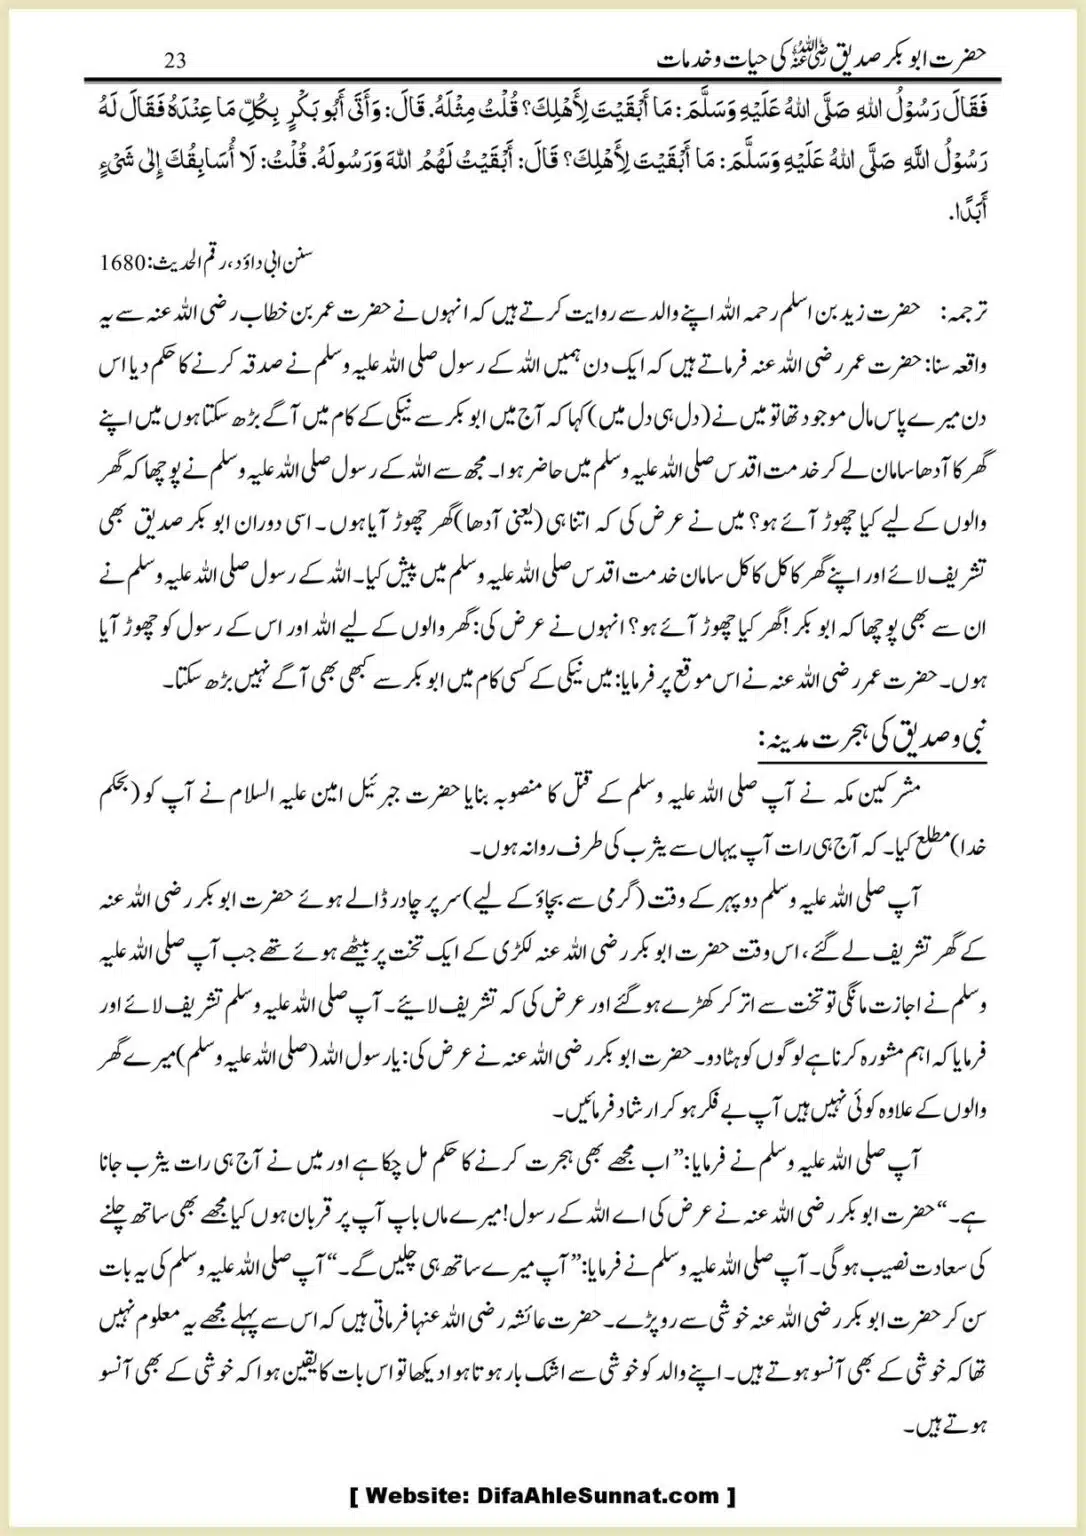 حضرت ابو بکر صدیق رضی اللہ عنہ کی حیات و خدمات
23
فَقَالَ رَسُوْلُ اللهِ صَلَّى اللهُ عَلَيْهِ وَسَلَّمَ: مَا أَبْقَيْتَ لِأَهْلِكَ؟ قُلْتُ مِثْلَهُ. قَالَ: وَأَتَى أَبُو بَكْرٍ بِكُلِّ مَا عِنْدَهُ فَقَالَ لَهُ
رَسُوْلُ اللَّهِ صَلَّى اللهُ عَلَيْهِ وَسَلَّمَ: مَا أَبْقَيْتَ لِأَهْلِكَ؟ قَالَ: أَبْقَيْتُ لَهُمُ اللهَ وَرَسُولَهُ. قُلْتُ: لَا أُسَابِقُكَ إِلٰى شَيْءٍ
أَبَدًا.
سنن ابی داؤد، رقم الحدیث: 1680
ترجمہ: حضرت زید بن اسلم رحمہ اللہ اپنے والد سے روایت کرتے ہیں کہ انہوں نے حضرت عمر بن خطاب رضی اللہ عنہ سے یہ
واقعہ سنا: حضرت عمر رضی اللہ عنہ فرماتے ہیں کہ ایک دن ہمیں اللہ کے رسول صلی اللہ علیہ وسلم نے صدقہ کرنے کا حکم دیا اس
دن میرے پاس مال موجود تھا تو میں نے (دل ہی دل میں) کہا کہ آج میں ابو بکر سے نیکی کے کام میں آگے بڑھ سکتا ہوں میں اپنے
گھر کا آدھا سامان لے کر خدمت اقدس صلی اللہ علیہ وسلم میں حاضر ہوا۔ مجھ سے اللہ کے رسول صلی اللہ علیہ وسلم نے پوچھا کہ گھر
والوں کے لیے کیا چھوڑ آئے ہو؟ میں نے عرض کی کہ اتنا ہی (یعنی آدھا) گھر چھوڑ آیا ہوں۔ اسی دوران ابو بکر صدیق بھی
تشریف لائے اور اپنے گھر کا کل کا کل سامان خدمت اقدس صلی اللہ علیہ وسلم میں پیش کیا۔ اللہ کے رسول صلی اللہ علیہ وسلم نے
ان سے بھی پوچھا کہ ابو بکر! گھر کیا چھوڑ آئے ہو؟ انہوں نے عرض کی: گھر والوں کے لیے اللہ اور اس کے رسول کو چھوڑ آیا
ہوں۔ حضرت عمر رضی اللہ عنہ نے اس موقع پر فرمایا: میں نیکی کے کسی کام میں ابو بکر سے کبھی بھی آگے نہیں بڑھ سکتا۔
نبی و صدیق کی ہجرت مدینہ:
مشرکین مکہ نے آپ صلی اللہ علیہ وسلم کے قتل کا منصوبہ بنایا حضرت جبرئیل امین علیہ السلام نے آپ کو (بحکم
خدا) مطلع کیا۔ کہ آج ہی رات آپ یہاں سے یثرب کی طرف روانہ ہوں۔
آپ صلی اللہ علیہ وسلم دوپہر کے وقت (گرمی سے بچاؤ کے لیے) سر پر چادر ڈالے ہوئے حضرت ابو بکر رضی اللہ عنہ
کے گھر تشریف لے گئے، اس وقت حضرت ابو بکر رضی اللہ عنہ لکڑی کے ایک تخت پر بیٹھے ہوئے تھے جب آپ صلی اللہ علیہ
وسلم نے اجازت مانگی تو تخت سے اتر کر کھڑے ہو گئے اور عرض کی کہ تشریف لائیے۔ آپ صلی اللہ علیہ وسلم تشریف لائے اور
فرمایا کہ اہم مشورہ کرنا ہے لوگوں کو ہٹا دو۔ حضرت ابو بکر رضی اللہ عنہ نے عرض کی: یا رسول اللہ (صلی اللہ علیہ وسلم) میرے گھر
والوں کے علاوہ کوئی نہیں ہیں آپ بے فکر ہو کر ارشاد فرمائیں۔
آپ صلی اللہ علیہ وسلم نے فرمایا: ”اب مجھے بھی ہجرت کرنے کا حکم مل چکا ہے اور میں نے آج ہی رات یثرب جانا
ہے۔“ حضرت ابو بکر رضی اللہ عنہ نے عرض کی اے اللہ کے رسول! میرے ماں باپ آپ پر قربان ہوں کیا مجھے بھی ساتھ چلنے
کی سعادت نصیب ہو گی۔ آپ صلی اللہ علیہ وسلم نے فرمایا: ”آپ میرے ساتھ ہی چلیں گے۔“ آپ صلی اللہ علیہ وسلم کی یہ بات
سن کر حضرت ابو بکر رضی اللہ عنہ خوشی سے رو پڑے۔ حضرت عائشہ رضی اللہ عنہا فرماتی ہیں کہ اس سے پہلے مجھے یہ معلوم نہیں
تھا کہ خوشی کے بھی آنسو ہوتے ہیں۔ اپنے والد کو خوشی سے اشک بار ہوتا ہوا دیکھا تو اس بات کا یقین ہوا کہ خوشی کے بھی آنسو
ہوتے ہیں۔
[ Website: DifaAhleSunnat.com ]